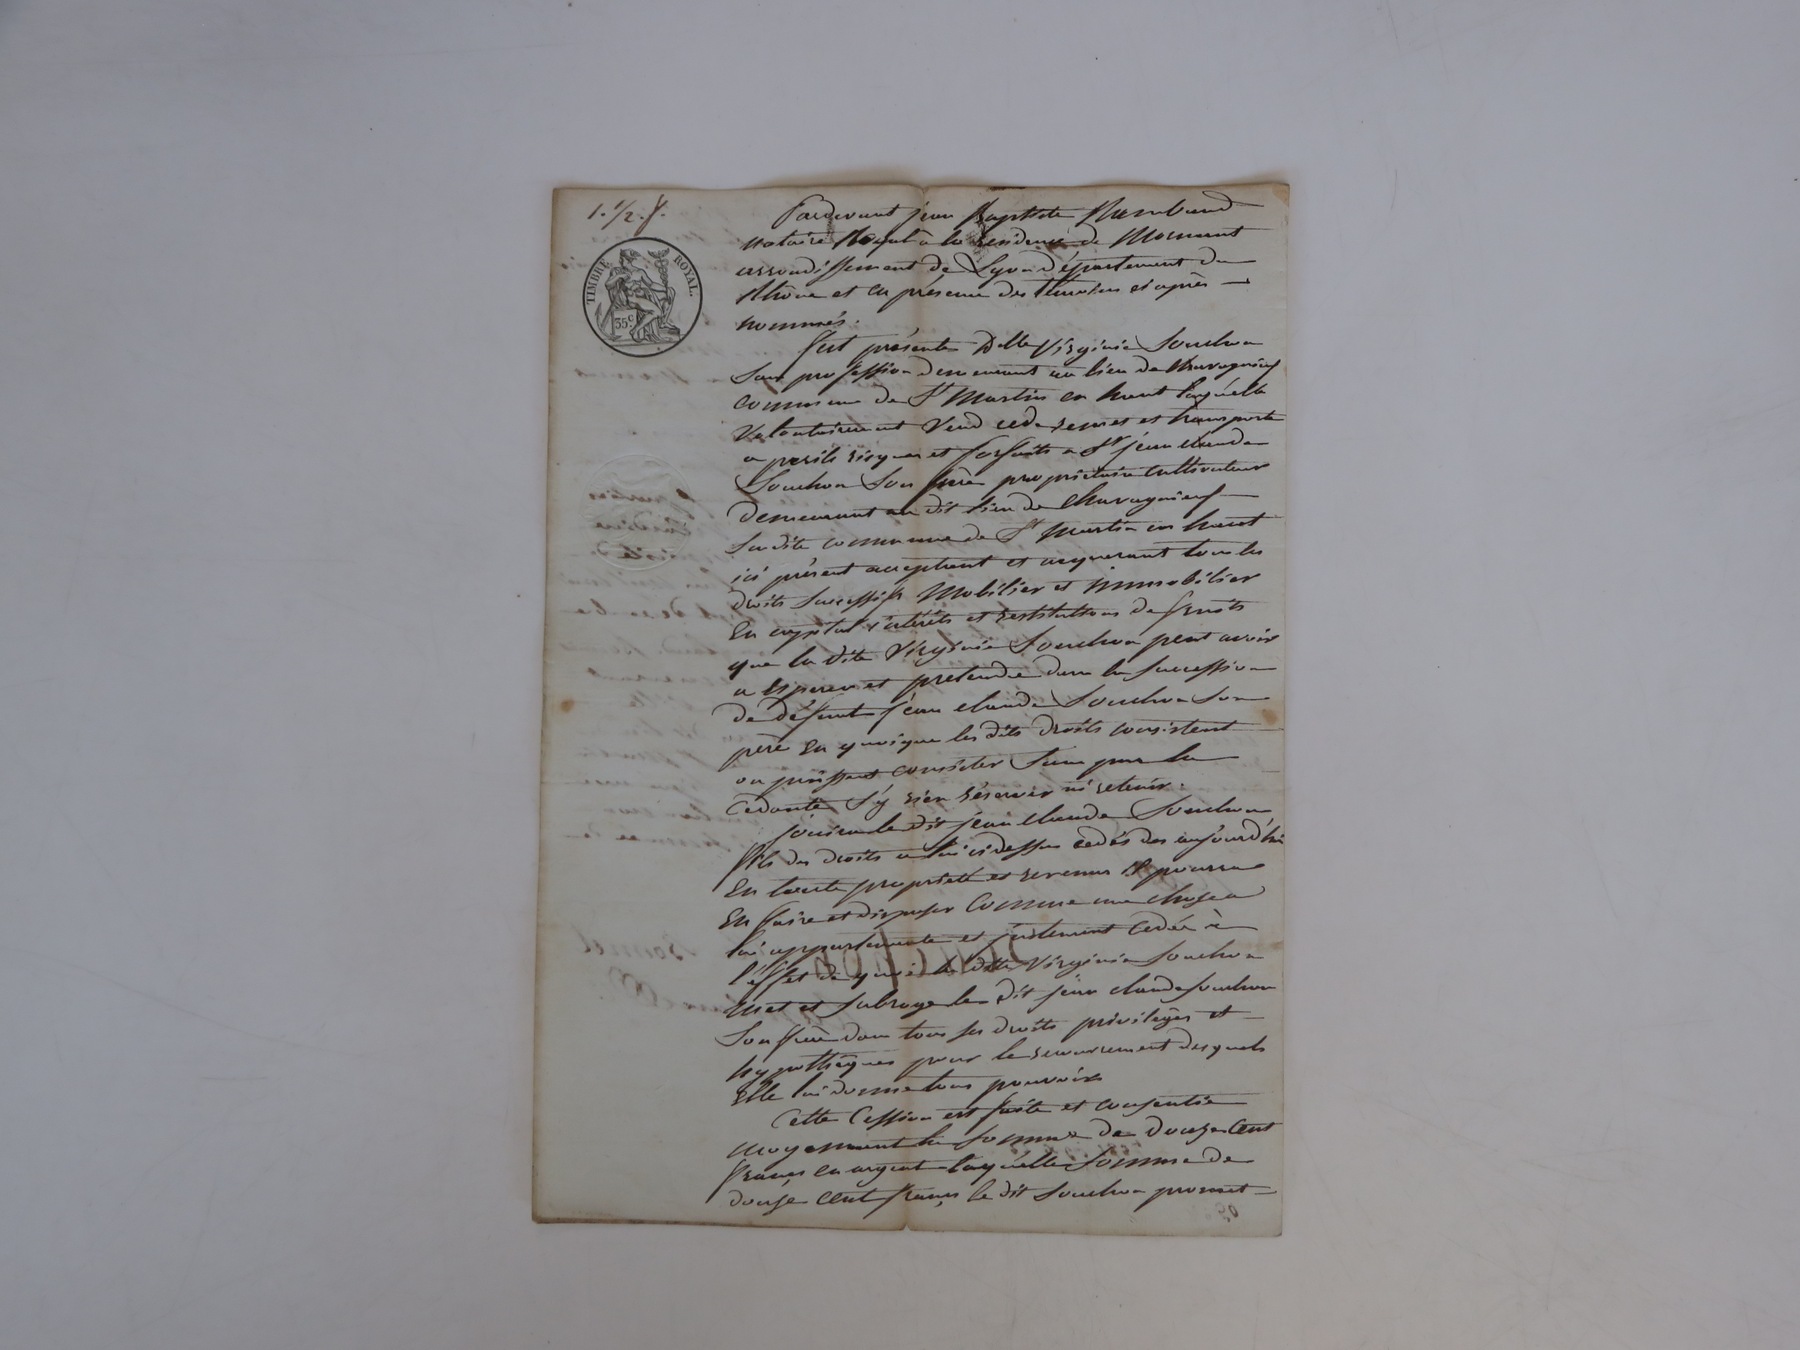 1. 1/2. f.
TIMBRE ROYAL.
35c
Pardevant jean Baptiste Rambaud
notaire Royal à la Residence de Mornant
arrondissement de Lyon département du
Rhône et en présence des témoins ci après
nommés.
fut présente Delle Virginie Souchon
Sans profession demeurant au lieu de
commune de St Martin en haut laquelle
Volontairement Vend cede remet et transporte
a perils risques et forfaits a Sr jean claude
Souchon Son frère propriétaire cultivateur
demeurant au dit lieu de
Susdite commune de St Martin en haut
ici présent acceptant et acquerant tous les
droits Successifs Mobilier et immobilier
En capital intérêts et restitutions de fruits
que la dite Virginie Souchon peut avoir
a Esperer et pretendre dans la Succession
de défunt jean claude Souchon Son
père En quoique les dits droits consistent
ou puissent consister Sans par la
Cedante S'y rien réserver ni retenir.
jouira le dit jean claude Souchon
fils des droits a lui ci dessus cedés des aujourd'hui
En toute proprieté et revenus Il pourra
En faire et disposer Comme une chose a
lui appartenante et justement Cedée à
l'éffet de quoi la dite Virginie Souchon
met et Subroge le dit jean claude Souchon
Son frère dans tous ses droits privilèges et
hypothèques pour le recouvrement desquels
Elle lui donne tous pouvoirs
Cette Cession est faite et consentie
moyennant la Somme de douze Cent
francs en argent laquelle Somme de
douze Cent francs le dit Souchon promet